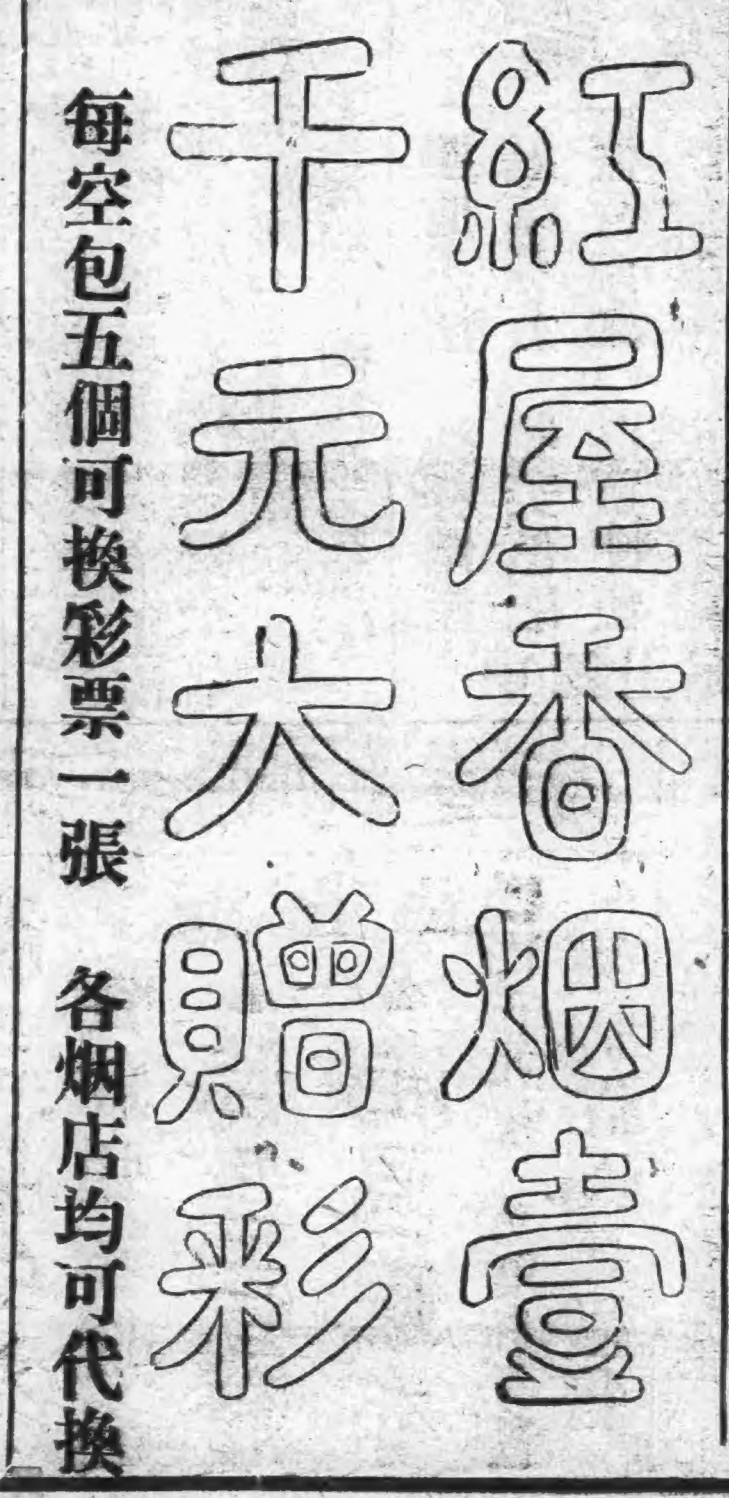 紅屋香烟壹
千元大贈彩
每空包五個可換彩票一張　各烟店均可代換